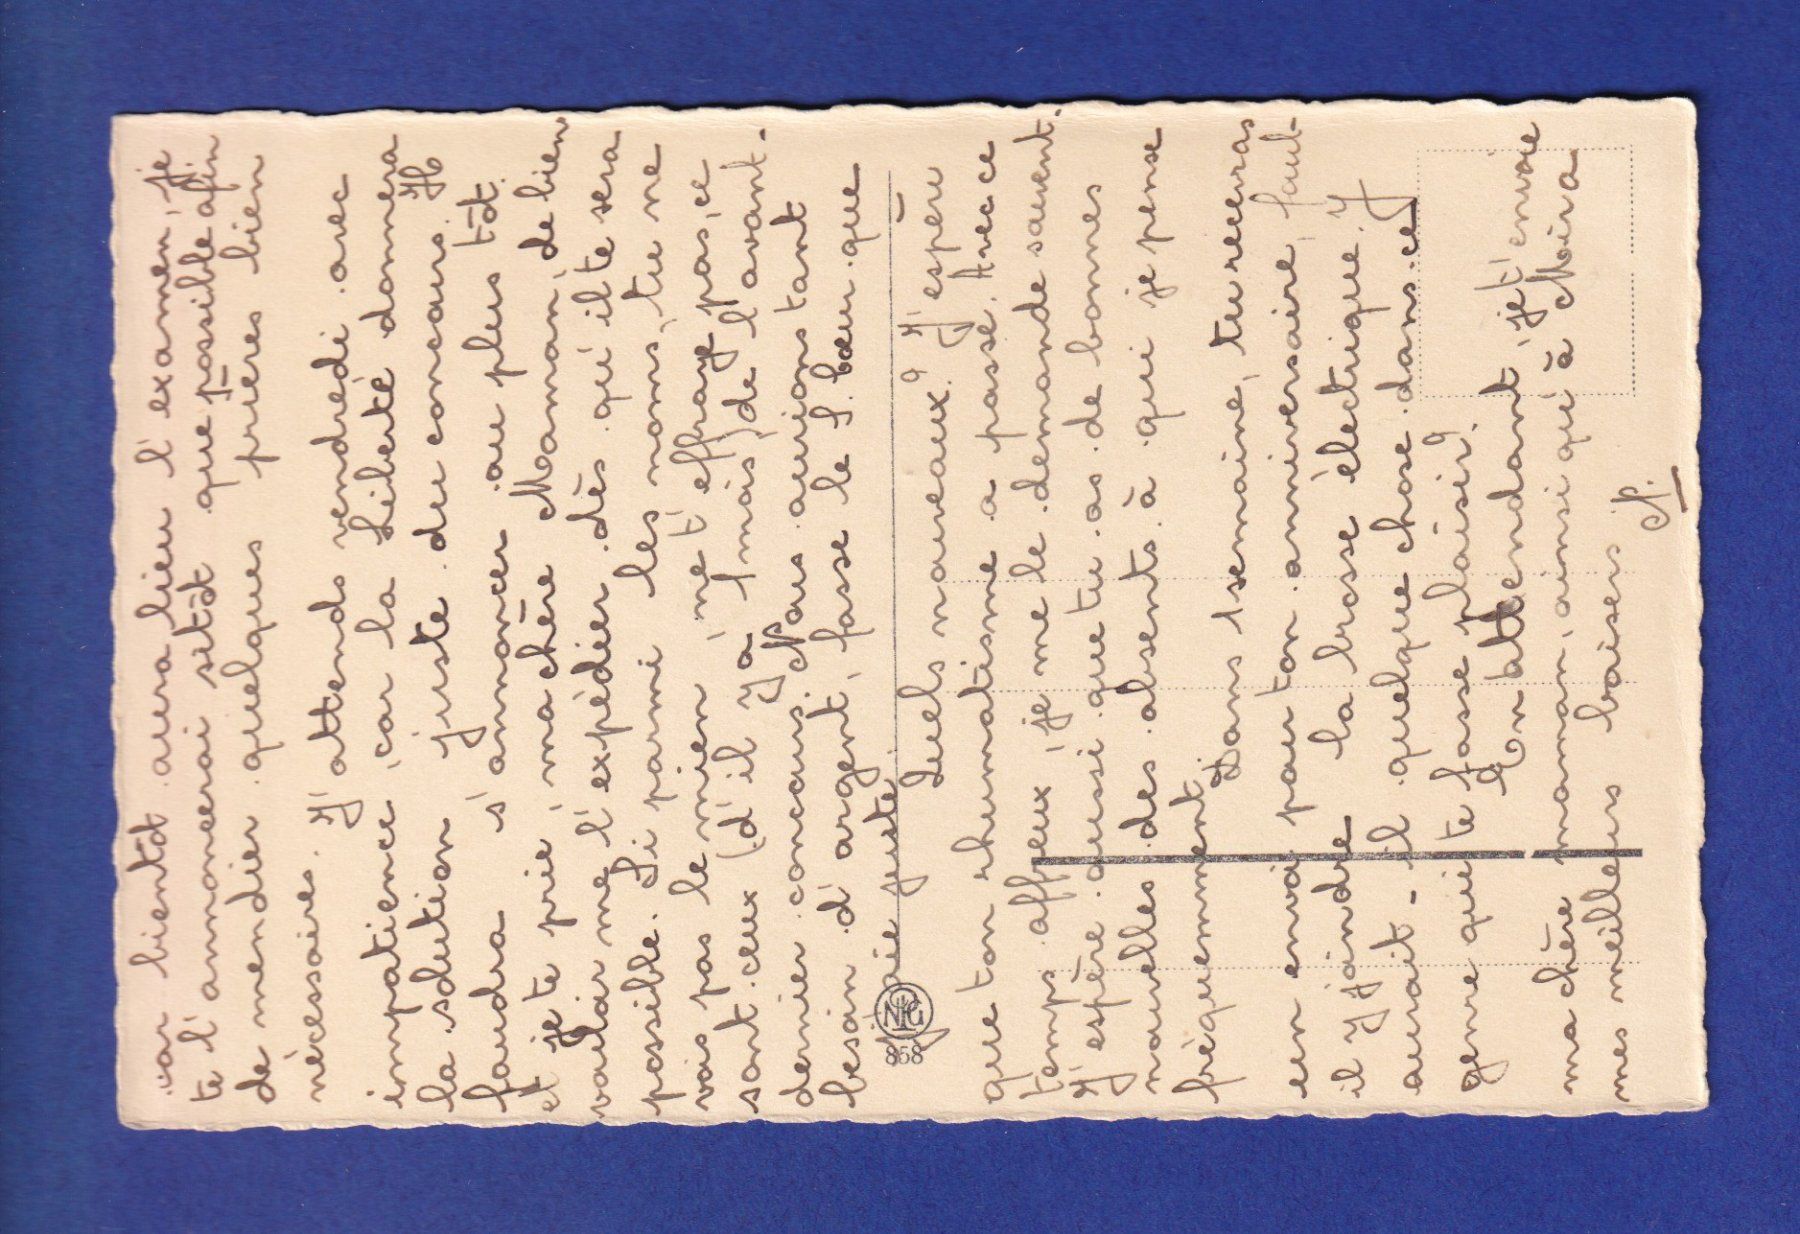 car bientôt aura lieu l'examen, je
te l'annoncerai sitôt que possible afin
de mendier quelques prières bien
nécessaires. J'attends vendredi avec
impatience, car la Liberté donnera
la solution juste du concours. Il
faudra s'annoncer au plus tôt
et je te prie, ma chère Maman, de bien
vouloir me l'expédier dès qu'il te sera
possible. Si parmi les noms, tu ne
vois pas le mien, ne t'effraye pas, ce
sont ceux (d'il y a 1 mois) de l'avant-
dernier concours. Nous aurions tant
besoin d'argent, fasse le S. Cœur que
j'aie juste!
Quels nouveaux? J'espère
que ton rhumatisme a passé. Avec ce
temps affreux, je me le demande souvent.
J'espère aussi que tu as de bonnes
nouvelles des absents à qui je pense
fréquemment.
Dans 1 semaine, tu recevras
un envoi pour ton anniversaire, faut-
il y joindre la brosse électrique. Y
aurait-il quelque chose dans ce
genre qui te fasse plaisir?
En attendant, je t'envoie
ma chère maman, ainsi qu'à Moira
mes meilleurs baisers
N.
NPG
868